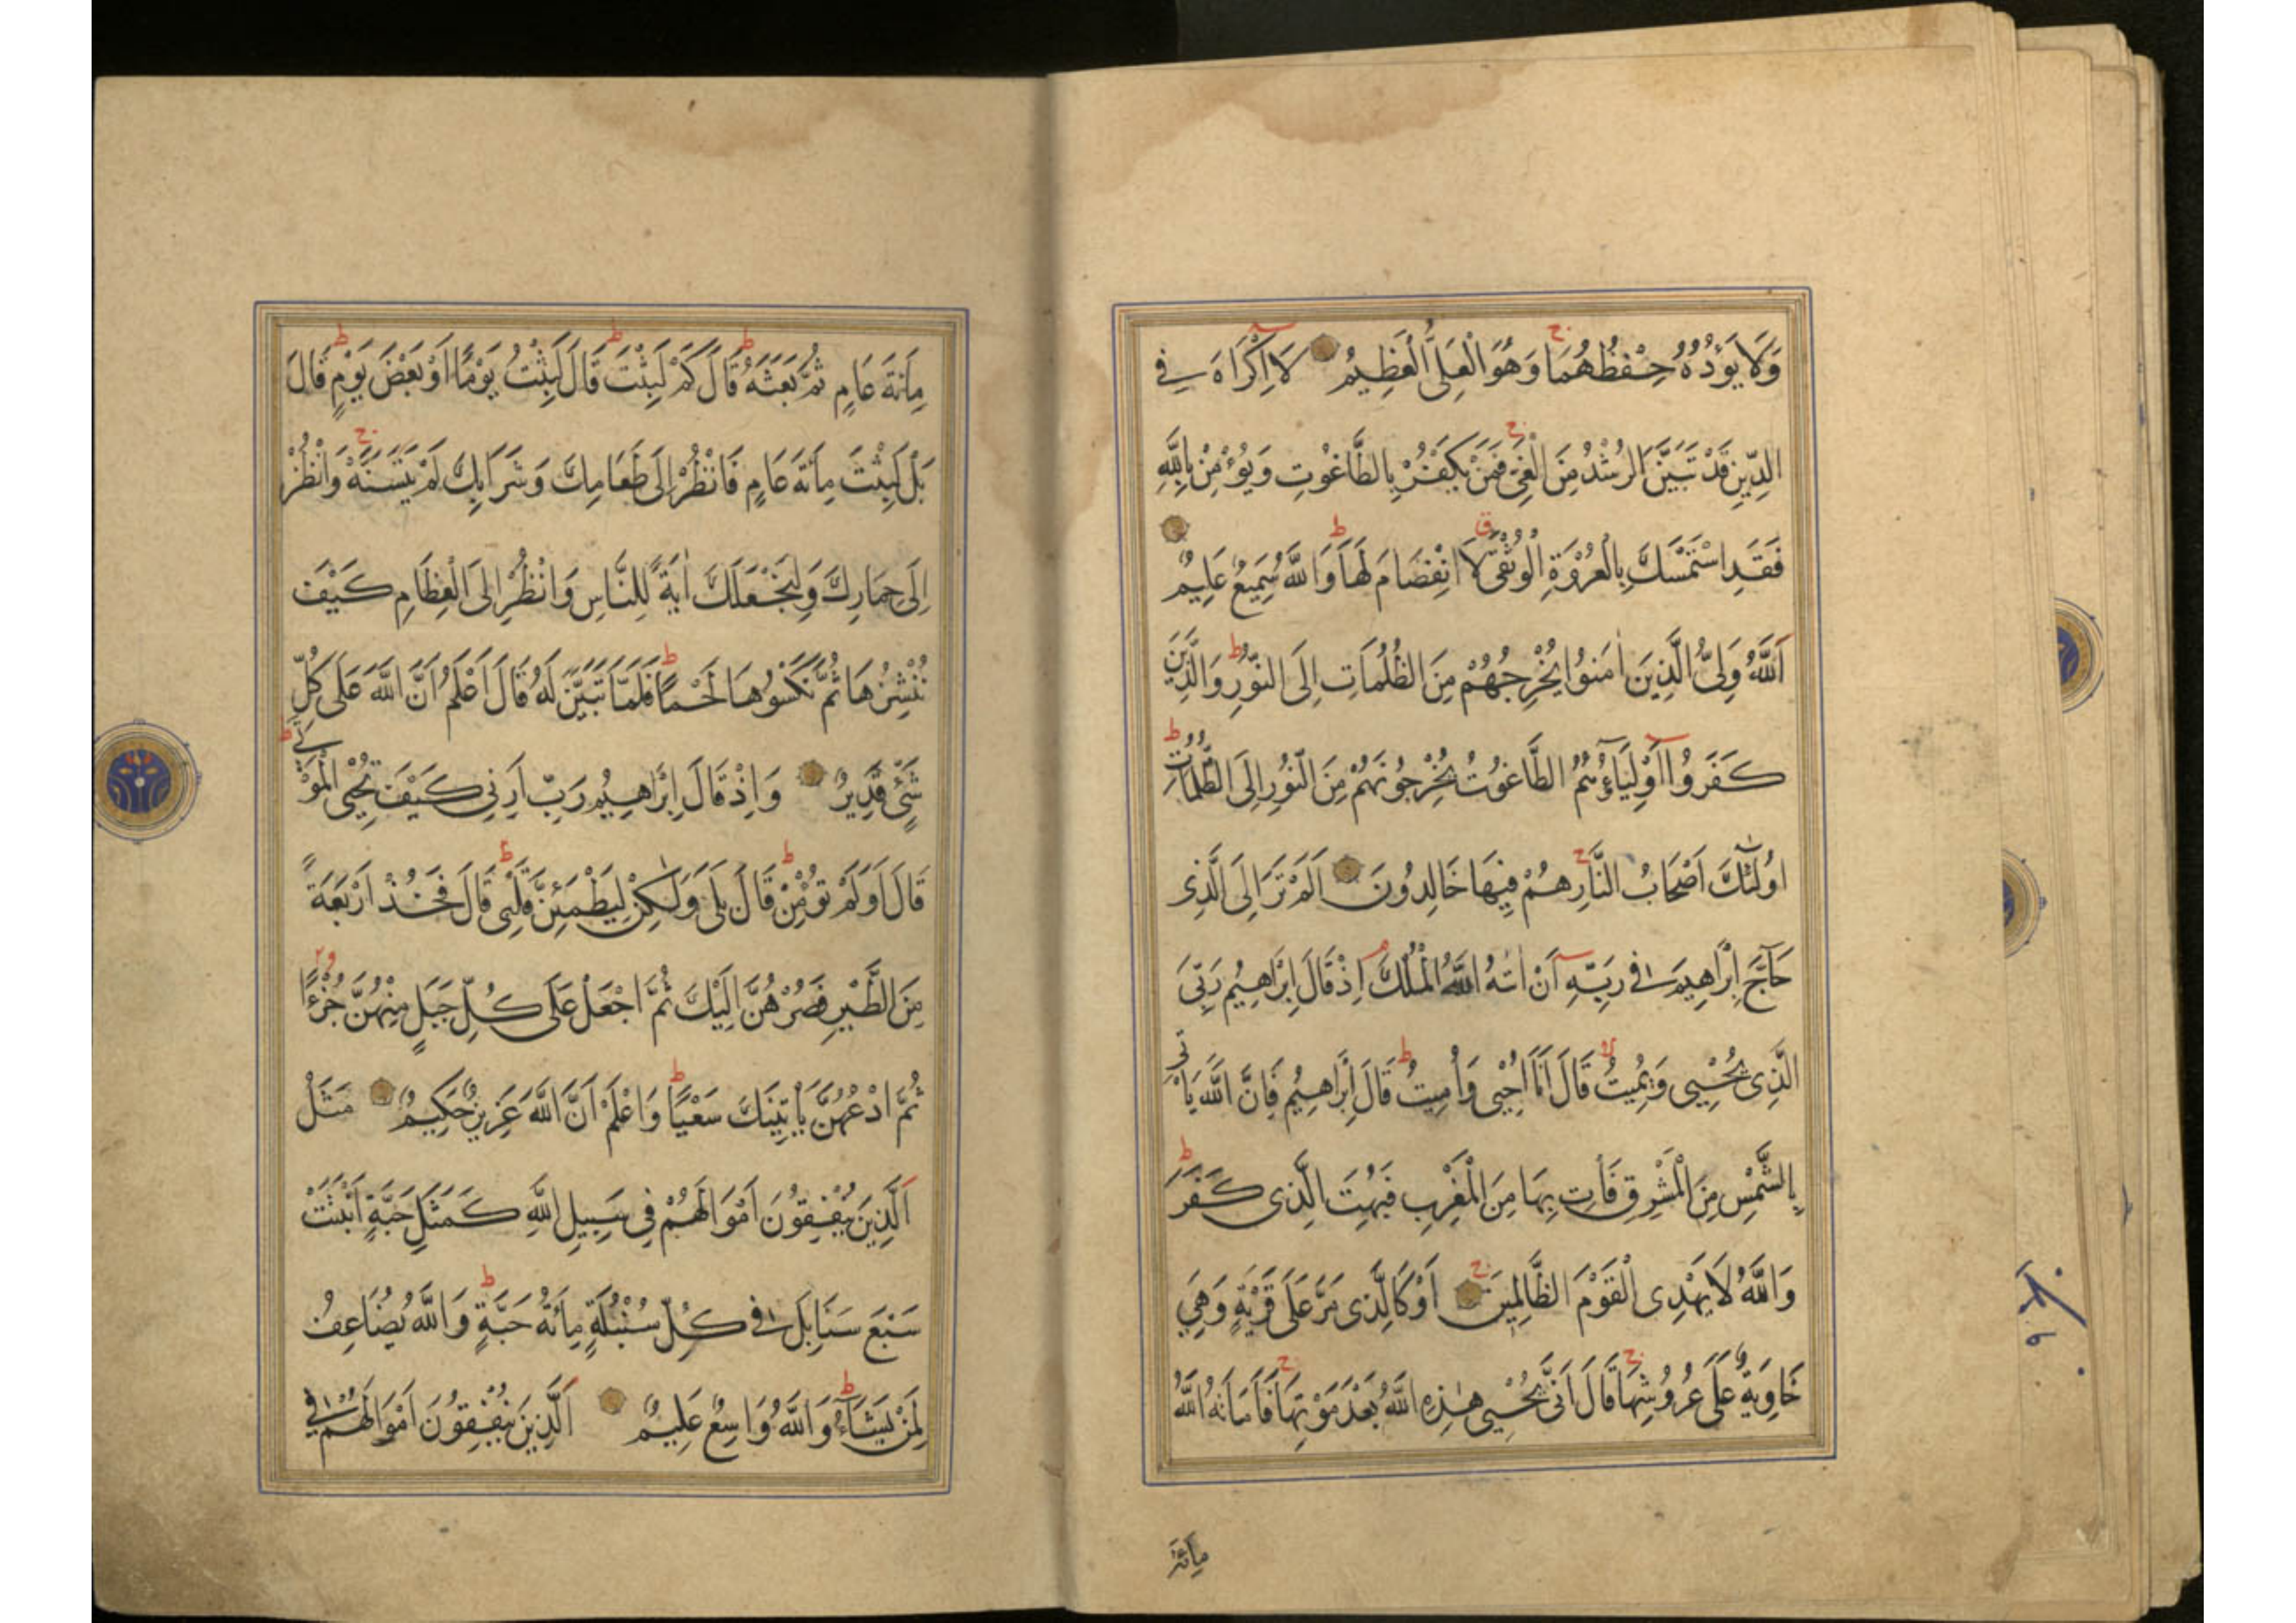 وَلَا يَؤُدُهُ حِفْظُهُمَا وَهُوَ الْعَلِىُّ الْعَظِيمُ لَا اِكْرَاهَ فِي
الدِّينِ قَدْ تَبَيَّنَ الرُّشْدُ مِنَ الْغَىِّ فَمَنْ يَكْفُرْ بِالطَّاغُوتِ وَيُؤْمِنْ بِاللّٰهِ
فَقَدِ اسْتَمْسَكَ بِالْعُرْوَةِ الْوُثْقَى لَا انْفِصَامَ لَهَا وَاللّٰهُ سَمِيعٌ عَلِيمٌ
اَللّٰهُ وَلِىُّ الَّذِينَ اٰمَنُوا يُخْرِجُهُمْ مِنَ الظُّلُمَاتِ اِلَى النُّورِ وَالَّذِينَ
كَفَرُوا اَوْلِيَاۤؤُهُمُ الطَّاغُوتُ يُخْرِجُونَهُمْ مِنَ النُّورِ اِلَى الظُّلُمَاتِ
اُولٰئِكَ اَصْحَابُ النَّارِ هُمْ فِيهَا خَالِدُونَ اَلَمْ تَرَ اِلَى الَّذِى
حَاۤجَّ اِبْرَاهِيمَ فِى رَبِّهِ اَنْ اٰتٰهُ اللّٰهُ الْمُلْكَ اِذْ قَالَ اِبْرَاهِيمُ رَبِّىَ
الَّذِى يُحْيِى وَيُمِيتُ قَالَ اَنَا اُحْيِى وَاُمِيتُ قَالَ اِبْرَاهِيمُ فَاِنَّ اللّٰهَ يَاْتِى
بِالشَّمْسِ مِنَ الْمَشْرِقِ فَاْتِ بِهَا مِنَ الْمَغْرِبِ فَبُهِتَ الَّذِى كَفَرَ
وَاللّٰهُ لَا يَهْدِى الْقَوْمَ الظَّالِمِينَ اَوْ كَالَّذِى مَرَّ عَلَى قَرْيَةٍ وَهِيَ
خَاوِيَةٌ عَلَى عُرُوشِهَا قَالَ اَنَّى يُحْيِى هٰذِهِ اللّٰهُ بَعْدَ مَوْتِهَا فَاَمَاتَهُ اللّٰهُ
مِائَةَ
مِائَةَ عَامٍ ثُمَّ بَعَثَهُ قَالَ كَمْ لَبِثْتَ قَالَ لَبِثْتُ يَوْمًا اَوْ بَعْضَ يَوْمٍ قَالَ
بَلْ لَبِثْتَ مِائَةَ عَامٍ فَانْظُرْ اِلَى طَعَامِكَ وَشَرَابِكَ لَمْ يَتَسَنَّهْ وَانْظُرْ
اِلَى حِمَارِكَ وَلِنَجْعَلَكَ اٰيَةً لِلنَّاسِ وَانْظُرْ اِلَى الْعِظَامِ كَيْفَ
نُنْشِزُهَا ثُمَّ نَكْسُوهَا لَحْمًا فَلَمَّا تَبَيَّنَ لَهُ قَالَ اَعْلَمُ اَنَّ اللّٰهَ عَلَى كُلِّ
شَىْءٍ قَدِيرٌ وَاِذْ قَالَ اِبْرَاهِيمُ رَبِّ اَرِنِى كَيْفَ تُحْيِى الْمَوْتَى
قَالَ اَوَلَمْ تُؤْمِنْ قَالَ بَلَى وَلٰكِنْ لِيَطْمَئِنَّ قَلْبِى قَالَ فَخُذْ اَرْبَعَةً
مِنَ الطَّيْرِ فَصُرْهُنَّ اِلَيْكَ ثُمَّ اجْعَلْ عَلَى كُلِّ جَبَلٍ مِنْهُنَّ جُزْءًا
ثُمَّ ادْعُهُنَّ يَاْتِينَكَ سَعْيًا وَاعْلَمْ اَنَّ اللّٰهَ عَزِيزٌ حَكِيمٌ مَثَلُ
الَّذِينَ يُنْفِقُونَ اَمْوَالَهُمْ فِى سَبِيلِ اللّٰهِ كَمَثَلِ حَبَّةٍ اَنْبَتَتْ
سَبْعَ سَنَابِلَ فِى كُلِّ سُنْبُلَةٍ مِائَةُ حَبَّةٍ وَاللّٰهُ يُضَاعِفُ
لِمَنْ يَشَاۤءُ وَاللّٰهُ وَاسِعٌ عَلِيمٌ اَلَّذِينَ يُنْفِقُونَ اَمْوَالَهُمْ فِى